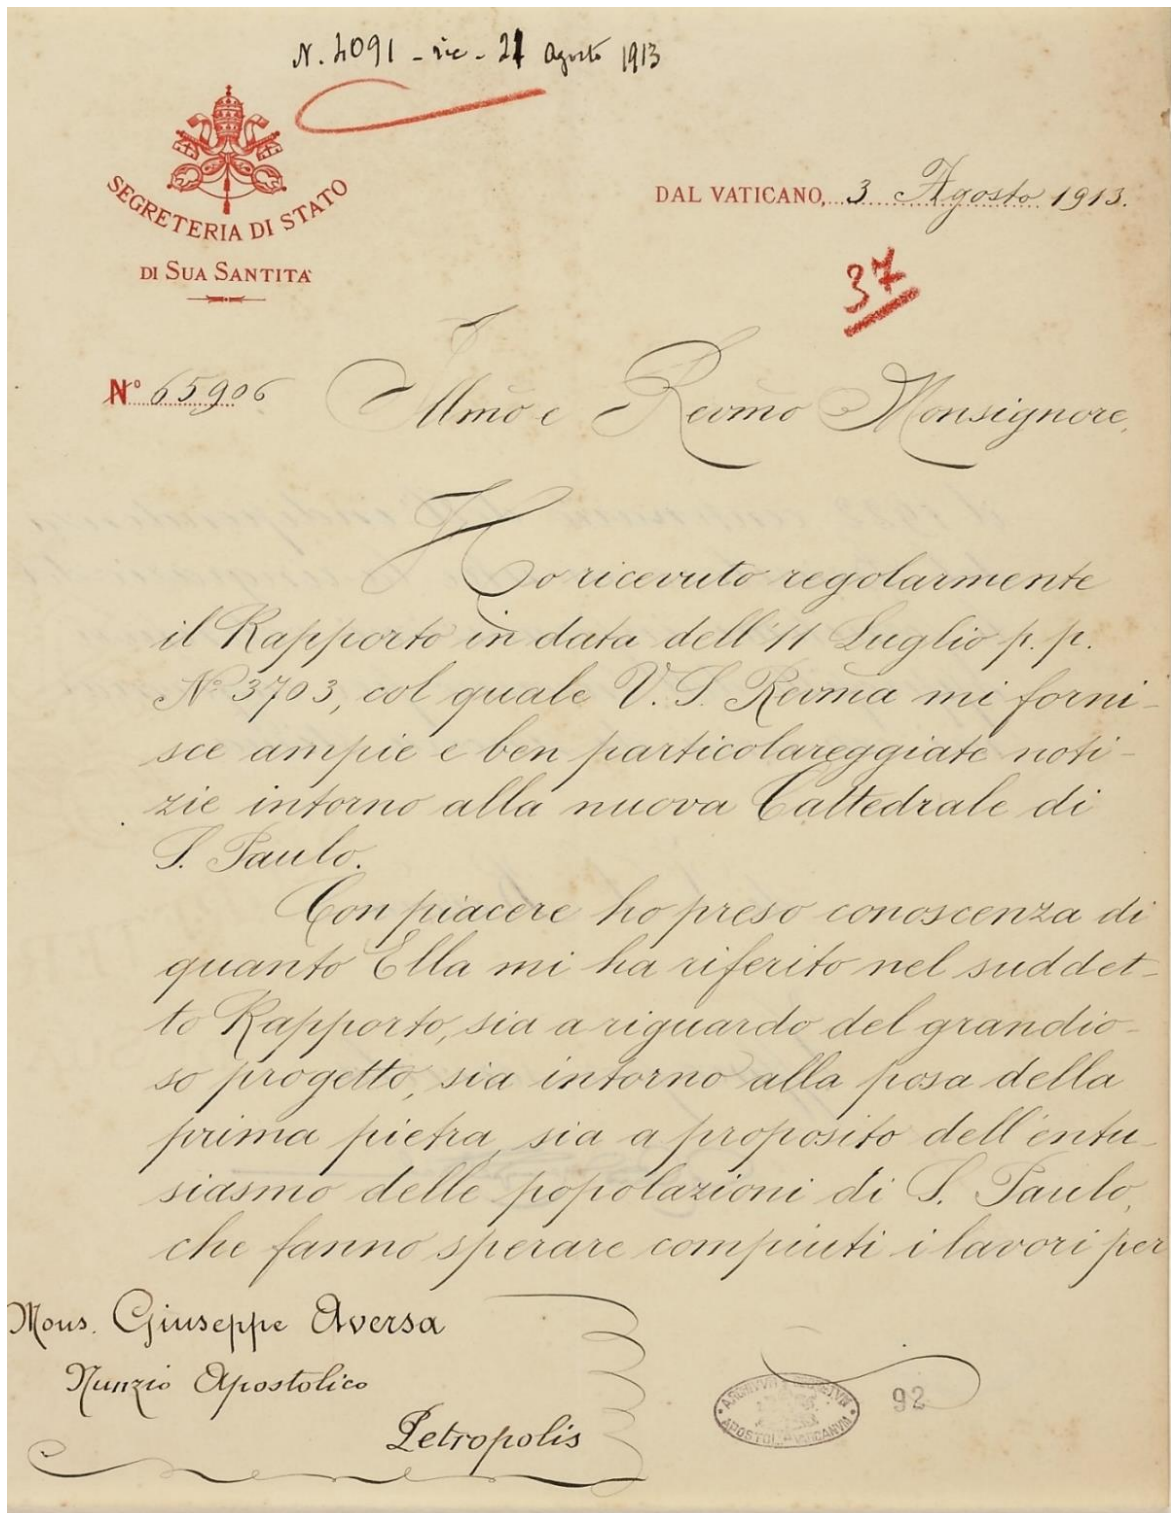 N. 4091 - ric - 21 Agosto 1913
SEGRETERIA DI STATO
DI SUA SANTITA'
DAL VATICANO, 3 Agosto 1913.
37
Nº 65906
Illmo e Revmo Monsignore,
Ho ricevuto regolarmente
il Rapporto in data dell'11 Luglio p. p.
Nº 3703, col quale V. S. Revma mi forni-
sce ampie e ben particolareggiate noti-
zie intorno alla nuova Cattedrale di
S. Paulo.
Con piacere ho preso conoscenza di
quanto Ella mi ha riferito nel suddet-
to Rapporto, sia a riguardo del grandio-
so progetto, sia intorno alla posa della
prima pietra, sia a proposito dell'entu-
siasmo delle popolazioni di S. Paulo,
che fanno sperare compiuti i lavori per
Mons. Giuseppe Aversa
Nunzio Apostolico
Petropolis
ARCHIVVM SECRETVM
APOSTOL. VATICANVM
92